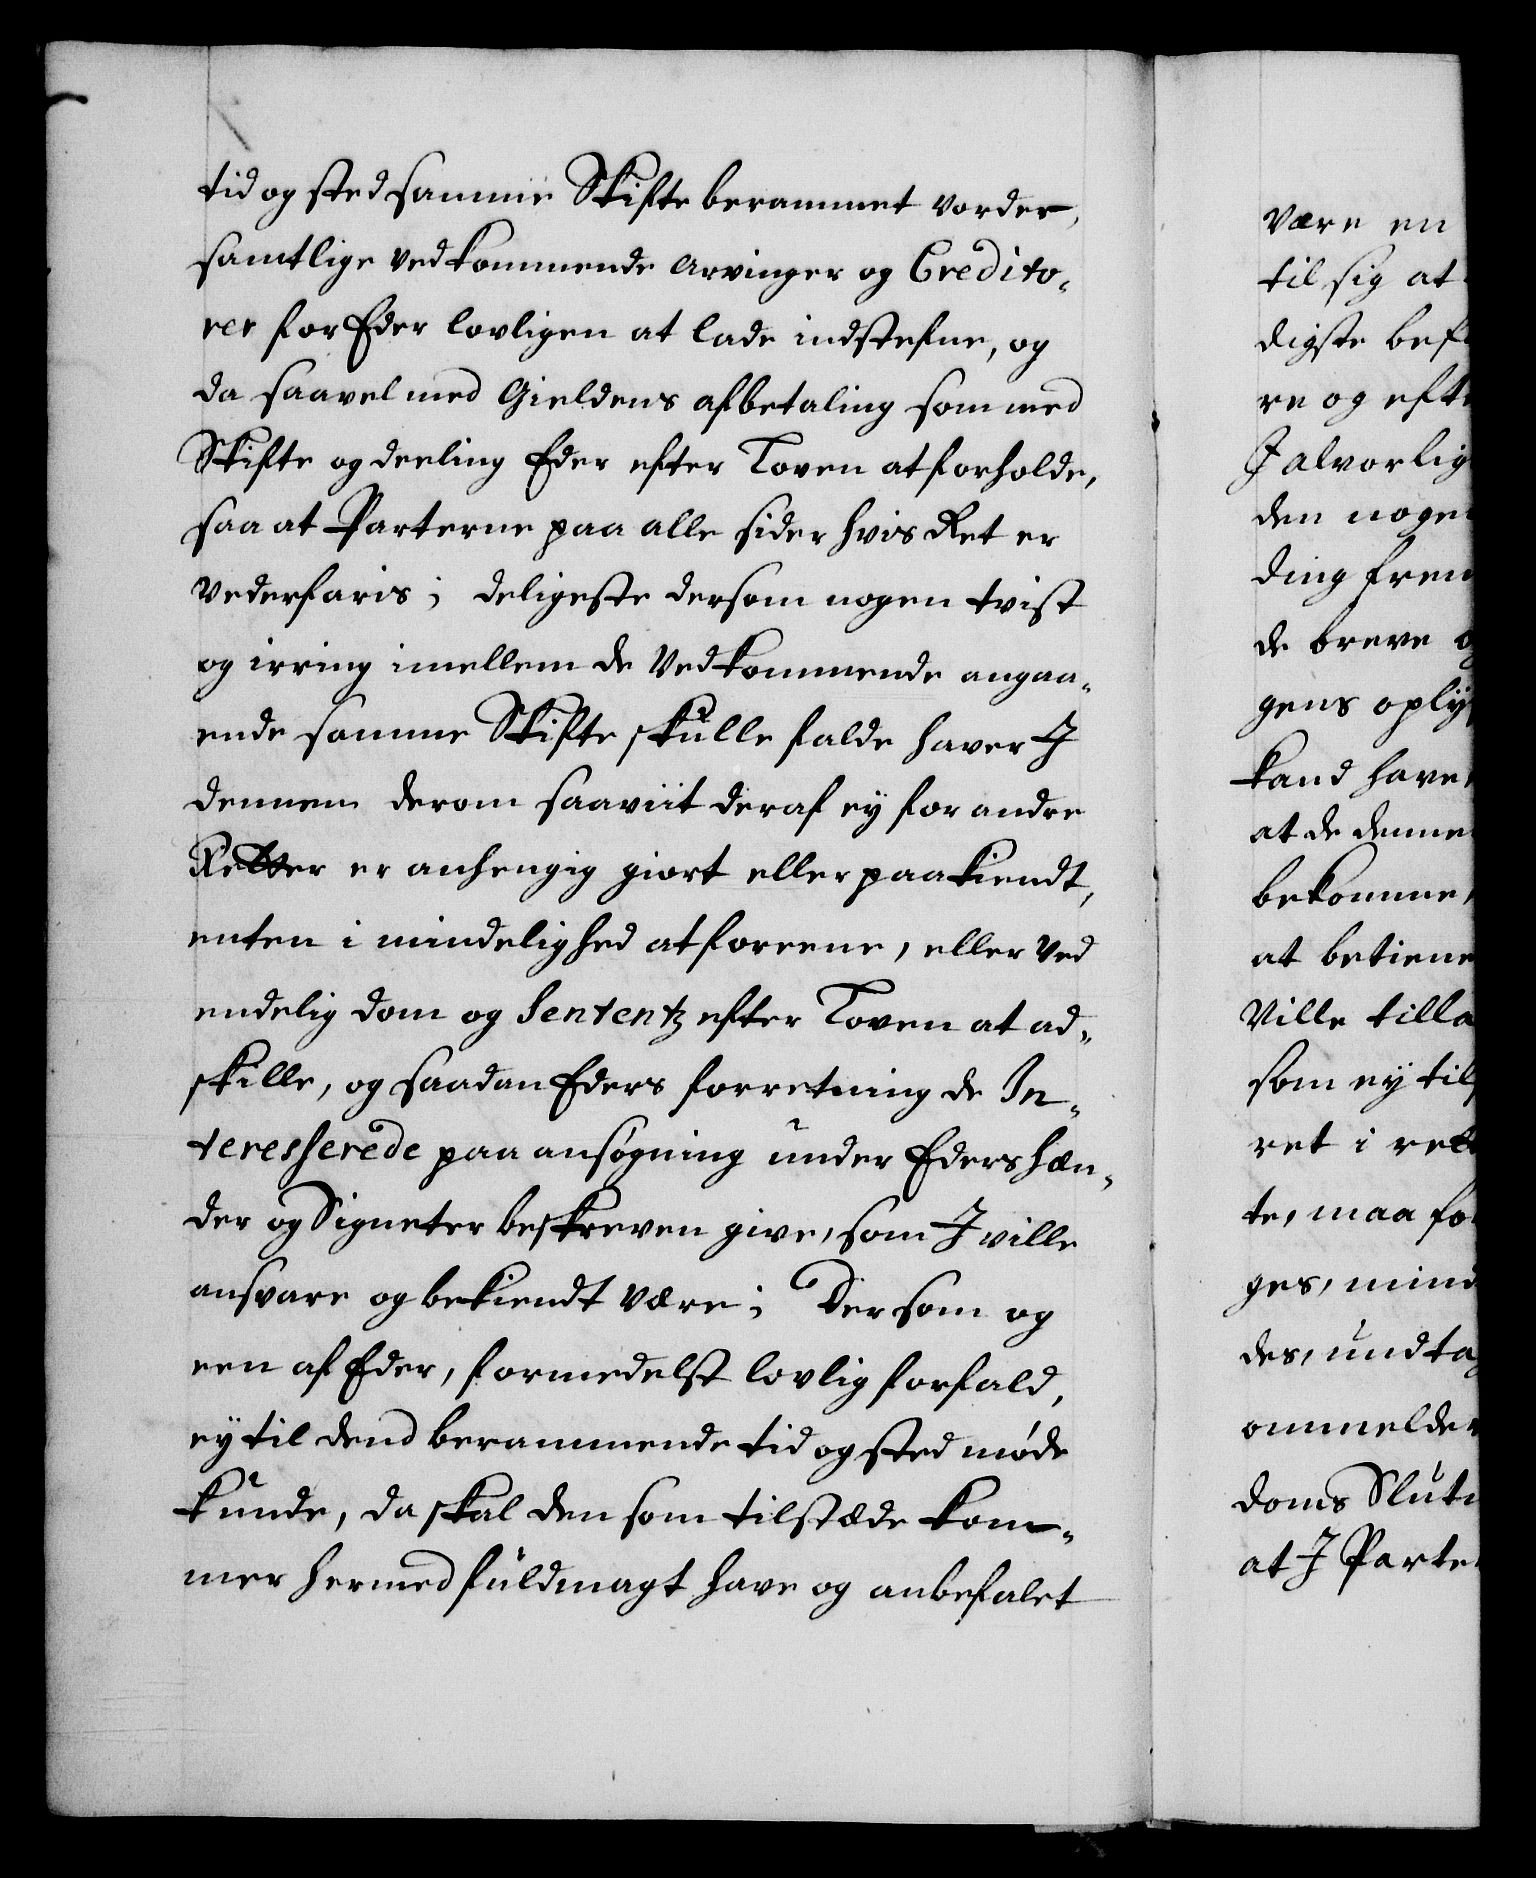 tid og sted samme Skifte berammet vorder,
samtlige vedkommende arvinger og Credito-
rer for Eder lovligen at lade indstefne, og
da saavel med Gieldens afbetaling som med
Skifte og deeling Eder efter Loven at forholde,
saa at Parterne paa alle sider hvis Ret er
vederfaris; deligeste dersom nogen tvist
og irring imellem de Vedkommende angaa-
ende samme Skifte skulle falde haver I
dennem derom saaviit deraf ey for andre
Retter er anhengig giort eller paakiendt,
enten i mindelighed at foreene, eller ved
endelig dom og Sententz efter Loven at ad-
skille, og saadan Eders forretning de In-
teresserede paa ansøgning under Eders hæn-
der og Signeter beskreven give, som I ville
ansvare og bekiendt være; Dersom og
een af Eder, formedelst lovlig forfald,
ey til dend berammende tid og sted møde
kunde, da skal den som tilstæde kom-
mer hermed fuldmagt have og anbefalet
være en
til sig at
digste bef
re og efte
I alvorlig
den noge
ding frem
de breve o
gens oply
kand have
at de denne
bekomme,
at betiene
Ville tilla
som ey til
ret i rett
te, maa fo
ges, mind
des, undta
ommelde
doms Slut
at I Parte